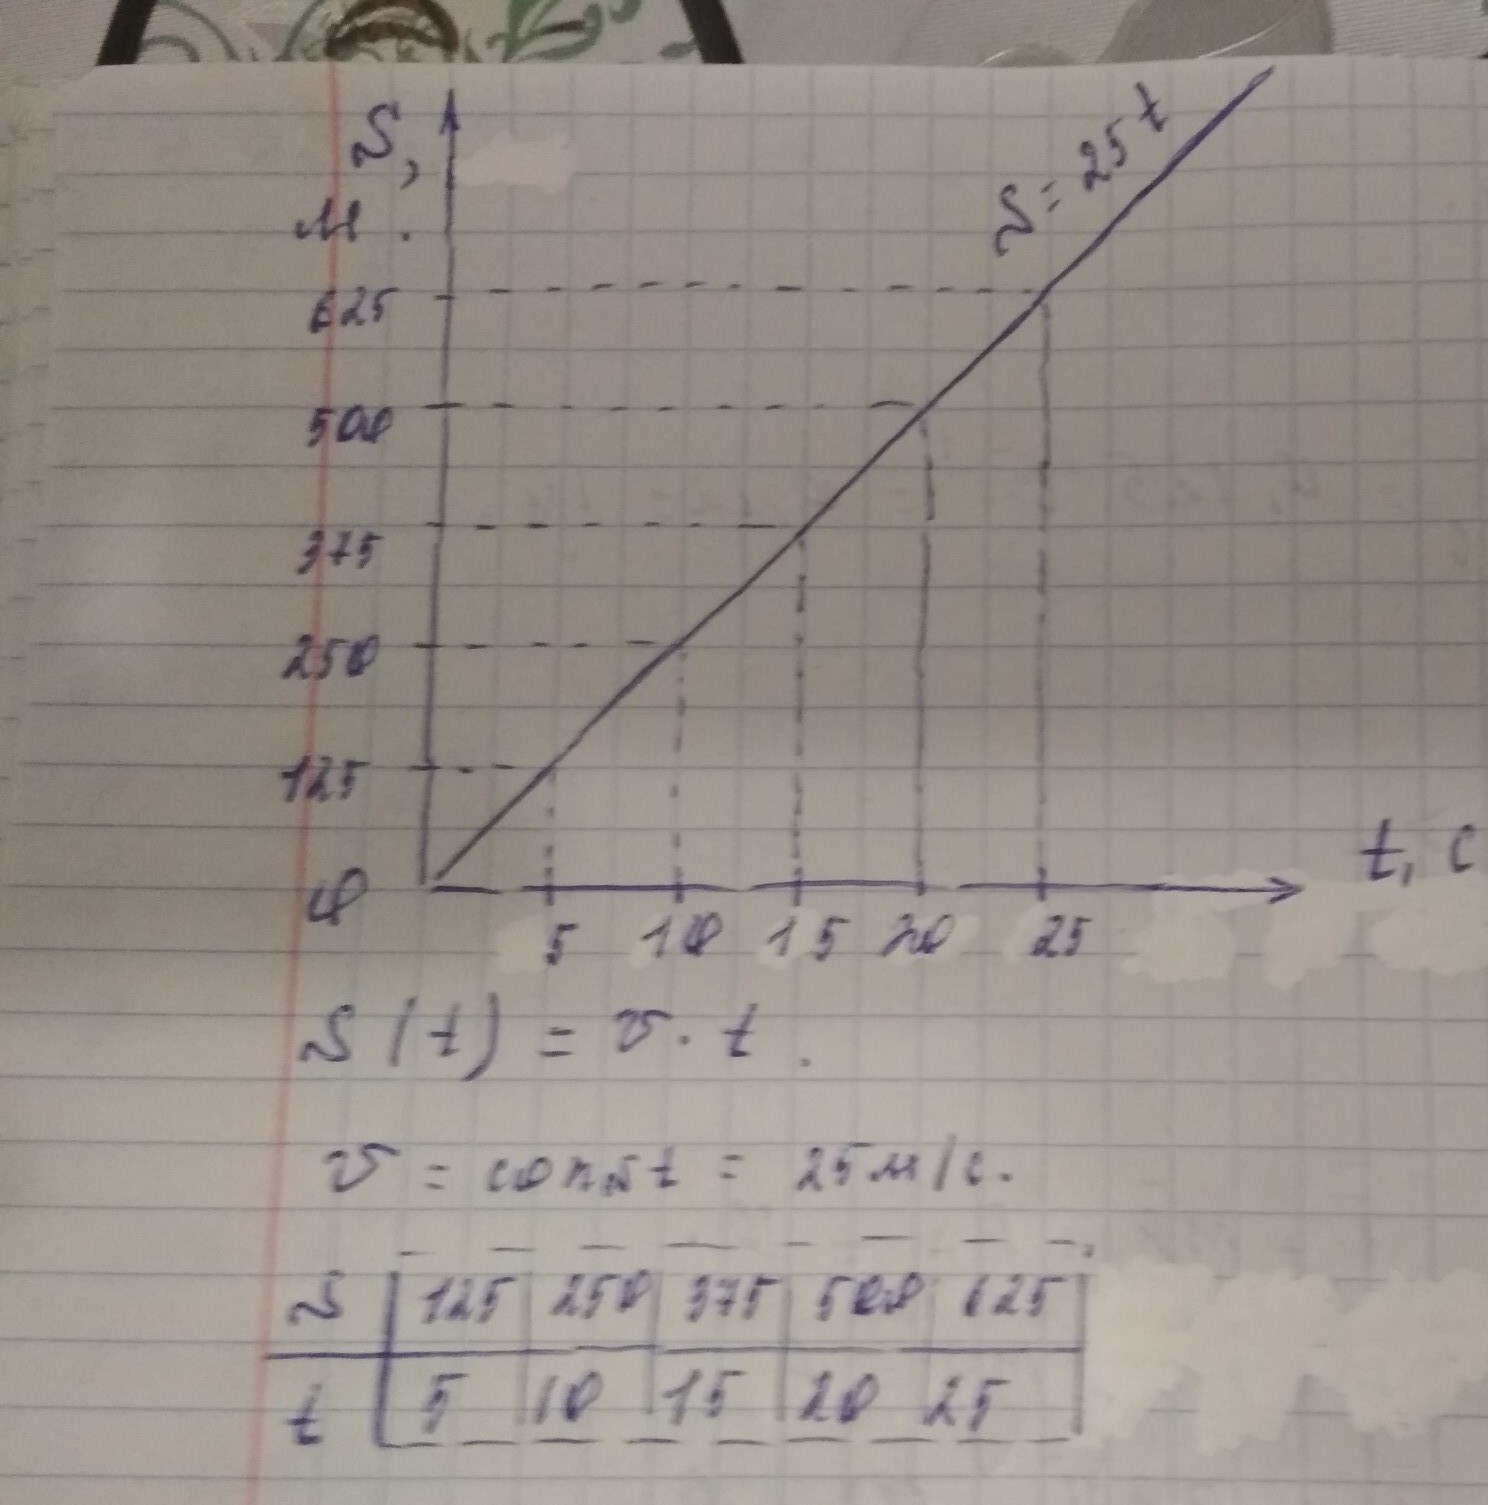 S,
м.
S = 25 t
625
500
375
250
125
0
5 10 15 20 25
t, c
S (t) = v · t.
v = const = 25 м/с.
S 125 250 375 500 625
t 5 10 15 20 25